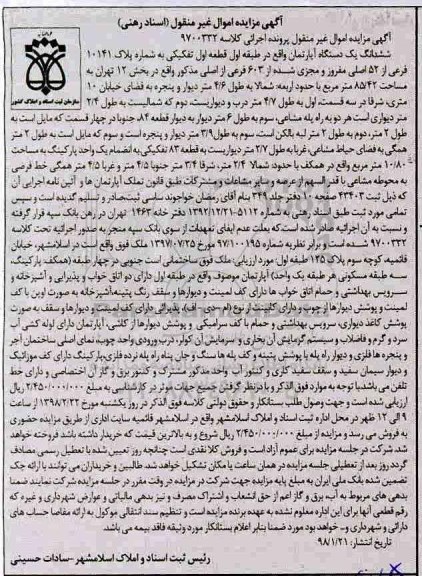 آگهی مزایده اموال غیر منقول (اسناد رهنی)
سازمان ثبت اسناد و املاک کشور
آگهی مزایده اموال غیر منقول پرونده اجرائی کلاسه ۹۷۰۰۳۳۲
ششدانگ یک دستگاه آپارتمان واقع در طبقه اول قطعه اول تفکیکی به شماره پلاک ۱۰۱۴۱
فرعی از ۵۲ اصلی مفروز و مجزی شده از ۶۰۳ فرعی از اصلی مذکور واقع در بخش ۱۲ تهران به
مساحت ۸۵/۴۲ متر مربع با حدود اربعه: شمالا به طول ۴/۶ متر دیوار و پنجره به فضای خیابان ۱۰
متری، شرقا در سه قسمت، اول به طول ۴/۷ متر درب و دیواریست، دوم که شمالیست به طول ۲/۴
متر دیواری است هر دو به راه پله مشاعی، سوم به طول ۶ متر دیوار به دیوار قطعه ۸۴، جنوبا در چهار قسمت که مایل است به
طول ۲ متر، دوم به طول ۲ متر لبه بالکن است، سوم به طول ۳/۹ متر دیوار و پنجره است و سوم که مایل است به طول ۲ متر
همگی به فضای حیاط مشاعی، غربا به طول ۲/۷ متر دیواریست به قطعه ۸۳ تفکیکی به انضمام یک واحد پارکینگ به مساحت
۱۰/۸۰ متر مربع واقع در همکف با حدود: شمالا ۲/۴ متر، شرقا ۳/۴ متر جنوبا ۴/۵ متر و غربا ۴/۵ متر همگی خط فرضی
به محوطه مشاعی با قدر السهم از عرصه و سایر مشاعات و مشترکات طبق قانون تملک آپارتمان ها و آئین نامه اجرایی آن
که ذیل ثبت ۴۳۴۰۳ صفحه ۱۰ دفتر جلد ۳۴۹ بنام آقای رمضان خواجوند ساسی ثبت صادر و تسلیم گردیده است و سپس
تمامی مورد ثبت طبق اسناد رهنی به شماره ۵۱۱۲-۱۳۹۲/۱۲/۲۱ دفتر خانه ۱۴۶۳ تهران در رهن بانک سپه قرار گرفته
و نسبت به آن اجرائیه صادر شده است، که بعلت عدم ایفای تعهدات از سوی بانک سپه منجر به صدور اجرائیه تحت کلاسه
۹۷۰۰۳۳۲ شده است و برابر نظریه شماره ۹۷/۱۰۰۱۹۵ مورخ ۱۳۹۷/۰۷/۲۵ ملک فوق واقع است در اسلامشهر، خیابان
قائمیه، کوچه سوم پلاک ۱۲۵ طبقه اول؛ مورد ارزیابی: ملک فوق ساختمانی است جنوبی در چهار طبقه (همکف پارکینگ
سه طبقه مسکونی هر طبقه یک واحد) آپارتمان موصوف واقع در طبقه اول دارای دو اتاق خواب و پذیرایی و آشپزخانه و
سرویس بهداشتی و حمام اتاق خواب ها دارای کف لمینت و دیوارها و سقف رنگ پتینه، آشپزخانه به صورت اوپن با کف
لمینت و پوشش دیوارها از چوب و دارای کابینت از نوع (ام دی اف)، پذیرائی دارای کف لمینت و دیوارها و سقف به صورت
پوشش کاغذ دیواری، سرویس بهداشتی و حمام با کف سرامیکی و پوشش دیوارها از کاشی، آپارتمان دارای لوله کشی آب
سرد و گرم و فاضلاب و سیستم گرمایش آن بخاری و سرمایش آن کولر، درب ورودی واحد چوب، نمای اصلی ساختمان آجر
و پنجره ها فلزی و دیوار راه پله با پوشش پتینه و کف پله ها سنگ و جان پناه راه پله نرده فلزی، پارکینگ دارای کف موزائیک
و دیوار سیمان سفید و سقف سفید کاری و کنتور آب واحد مذکور مشترک و کنتور برق و گاز آن اختصاصی و دارای خط
تلفن می باشد با توجه به موارد فوق الذکر و با در نظر گرفتن جمیع جهات موثر در کارشناسی به مبلغ ۲/۴۵۰/۰۰۰/۰۰۰ ریال
ارزیابی شده است و جهت وصول طلب بستانکار و حقوق دولتی کلاسه فوق الذکر در روز یکشنبه مورخ ۱۳۹۸/۲/۲۲ از ساعت
۹ الی ۱۲ ظهر در محل اداره ثبت اسناد و املاک اسلامشهر واقع در اسلامشهر قائمیه سایت اداری از طریق مزایده حضوری
به فروش می رسد و مزایده از مبلغ ۲/۴۵۰/۰۰۰/۰۰۰ ریال شروع و به بالاترین قیمت که خریدار داشته باشد فروخته خواهد
شد. شرکت در جلسه مزایده برای عموم آزاد است و فروش کلا نقدی است چنانچه روز تعیین شده با تعطیل رسمی مصادف
گردد روز بعد از تعطیلی جلسه مزایده در همان ساعت یا مکان تشکیل خواهد شد. طالبین و خریداران می توانند با ارائه چک
تضمین شده بانک ملی ایران به مبلغ پایه مزایده جهت شرکت در مزایده در وقت مقرر در جلسه مزایده شرکت نمایند ضمنا
بدهی های مربوط به آب، برق و گاز اعم از حق انشعاب و اشتراک مصرف و نیز بدهی مالیاتی و عوارض شهرداری و غیره که
رقم قطعی آنها برای این اداره معلوم نشده به عهده برنده مزایده است و تنظیم سند انتقالی موکول به ارائه مفاصا حساب های
دارائی و شهرداری و... خواهد بود مورد ضمنا بنابر اعلام بستانکار مورد وثیقه فاقد بیمه می باشد.
تاریخ انتشار: ۹۸/۱/۲۱
رئیس ثبت اسناد و املاک اسلامشهر-سادات حسینی